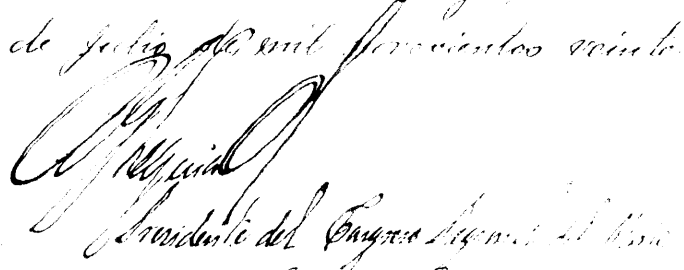 de Julio de mil novecientos veinte
Presidente del Congreso Regional del Norte